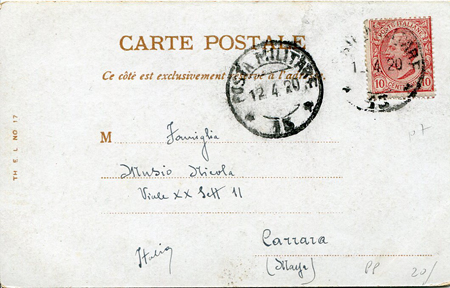 CARTE POSTALE
Ce côté est exclusivement réservé à l'adresse.
POSTA MILITARE
12 4 20
15
POSTE ITALIANE
12.4.20
15
10 CENT 10
TH. E. L. NO 17
M Famiglia
Musio Nicola
Viale XX Sett 11
Italia
Carrara
(Massa)
PP 20/